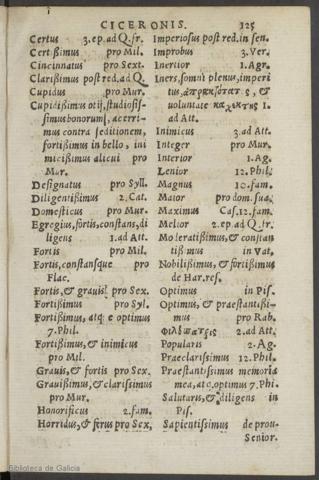 CICERONIS. 125
Certus 3.ep.ad Q.fr.
Certißimus pro Mil.
Cincinnatus pro Sext.
Clarißimus post red.ad Q.
Cupidus pro Mur.
Cupidißimus otij, studiosis-
simus bonorum, acerri-
mus contra seditionem,
fortißimus in bello, ini
micißimus alicui pro
Mur.
Designatus pro Syll.
Diligentißimus 2.Cat.
Domesticus pro Mur.
Egregius, fortis, constans, di
ligens 1.ad Att.
Fortis pro Mil.
Fortis, constansque pro
Flac.
Fortis, & grauis pro Sex.
Fortißimus pro Syl.
Fortißimus, atq; optimus
7.Phil.
Fortißimus, & inimicus
pro Mil.
Grauis, & fortis pro Sex.
Grauißimus, & clarissimus
pro Mur.
Honorificus 2.fam.
Horridus, & ferus pro Sex.
Imperiosus post red.in sen.
Improbus 3.Ver.
Inertior 1.Agr.
Iners, somni plenus, imperi
&
voluntate 1.
ad Att.
Inimicus 3.ad Att.
Integer pro Mur.
Interior 1.Ag.
Lenior 12.Phil.
Magnus 10.fam.
Maior pro dom.sua.
Maximus Cas.12.fam.
Melior 2.ep.ad Q.fr.
Moderatißimus, & constan
tißimus in Vat.
Nobilißimus, & fortißimus
de Har.res.
Optimus in Pis.
Optimus, & praestantißi-
mus pro Rab.
2.ad Att.
Popularis 2.Ag.
Praeclarissimus 12.Phil.
Praestantissimus memoria
mea, atq; optimus 7.Phi.
Salutaris, & diligens in
Pis.
Sapientissimus de prou.
Senior.
Biblioteca de Galicia